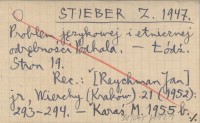 STIEBER Z. 1947.
Problem językowej i etnicznej
odrębności Podhala. — Łódź.
Stron 19.
Rec.: [Reychman Jan]
jr, Wierchy (Kraków) 21 (1952):
293-294. — Karaś M. 1955 b.